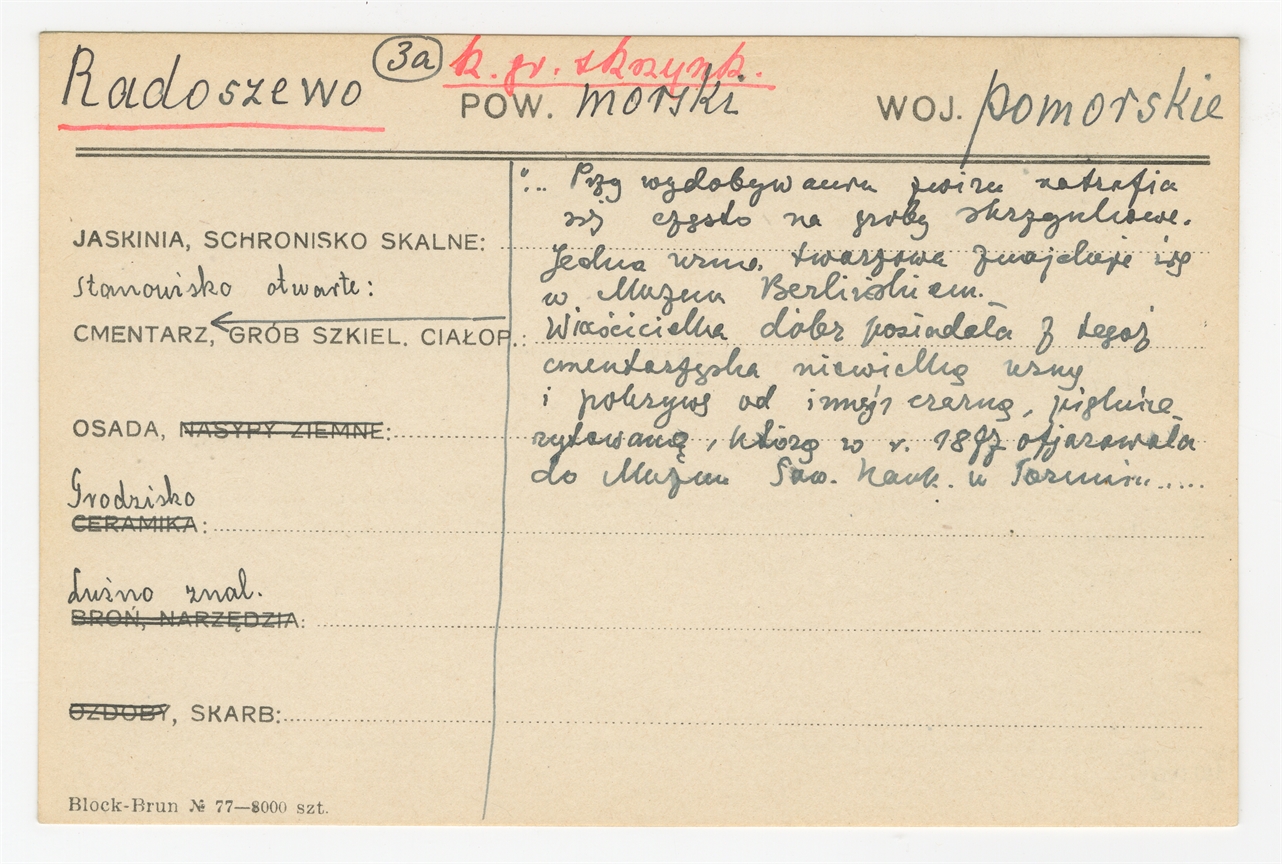 Radoszewo (3a) k. gr. skrzynk.
POW. morski WOJ. pomorskie
"... Przy wydobywaniu żwiru natrafia
się często na groby skrzynkowe.
JASKINIA, SCHRONISKO SKALNE:
Jedna urna twarzowa znajduje się
Stanowisko otwarte:
w Muzeum Berlińskiem._
CMENTARZ, GRÓB SZKIEL. CIAŁOP.:
Właścicielka dóbr posiadała z tegoż
cmentarzyska niewielką urnę
i pokrywę od innej, czarną, pięknie
OSADA, NASYPY ZIEMNE:
rytowaną, którą w r. 1877 ofiarowała
do Muzeum Tow. Nauk. w Toruniu.....
Grodzisko
CERAMIKA:
Luźno znal.
BROŃ, NARZĘDZIA:
OZDOBY, SKARB:
Block-Brun № 77—8000 szt.